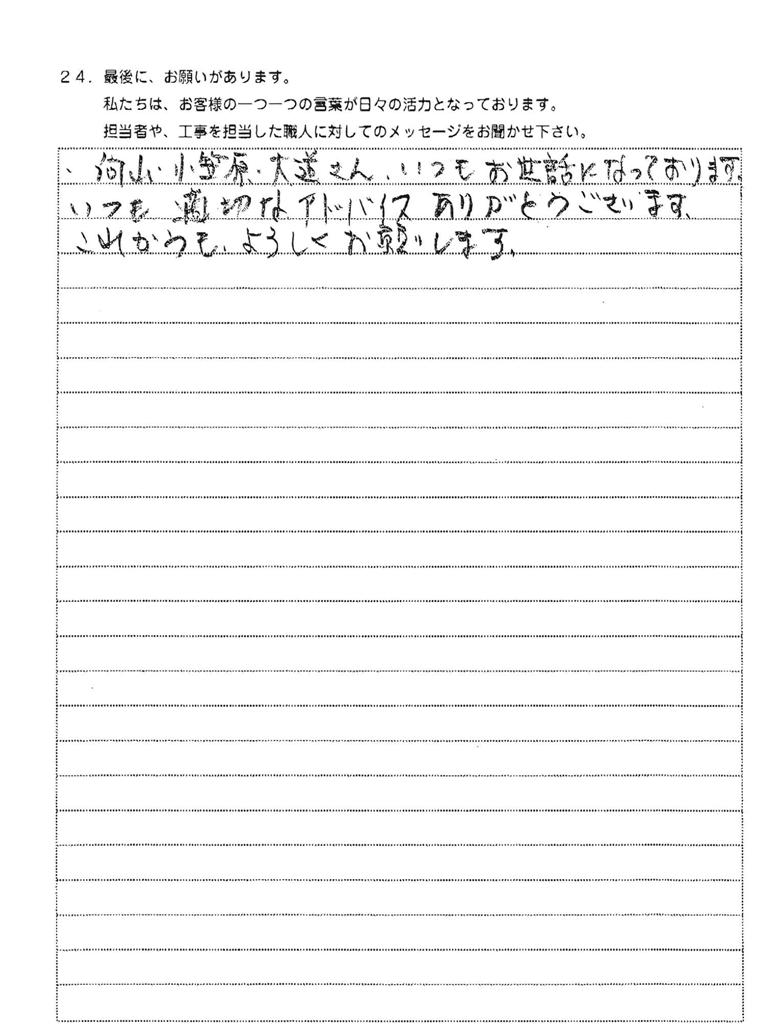 ２４．最後に、お願いがあります。
私たちは、お客様の一つ一つの言葉が日々の活力となっております。
担当者や、工事を担当した職人に対してのメッセージをお聞かせ下さい。
・何山・小笠原・大道さん、いつもお世話になっております。
いつも適切なアドバイスありがとうございます。
これからも、よろしくお願いします。